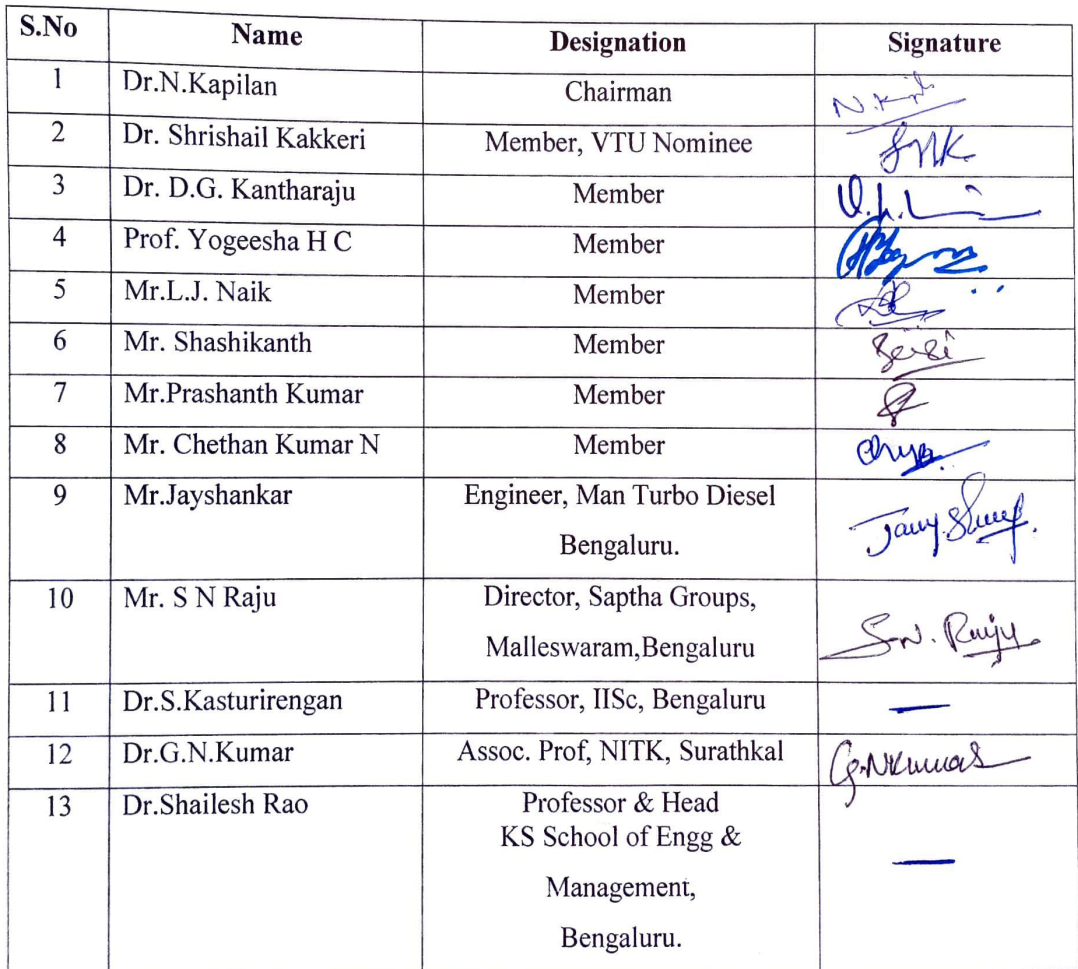 S.No Name Designation Signature
1 Dr.N.Kapilan Chairman N.Kapil
2 Dr. Shrishail Kakkeri Member, VTU Nominee
3 Dr. D.G. Kantharaju Member
4 Prof. Yogeesha H C Member
5 Mr.L.J. Naik Member
6 Mr. Shashikanth Member
7 Mr.Prashanth Kumar Member
8 Mr. Chethan Kumar N Member
9 Mr.Jayshankar Engineer, Man Turbo Diesel
Bengaluru.
10 Mr. S N Raju Director, Saptha Groups,
Malleswaram,Bengaluru S.N. Raju
11 Dr.S.Kasturirengan Professor, IISc, Bengaluru —
12 Dr.G.N.Kumar Assoc. Prof, NITK, Surathkal G.NKumar
13 Dr.Shailesh Rao Professor & Head
KS School of Engg &
Management, —
Bengaluru.